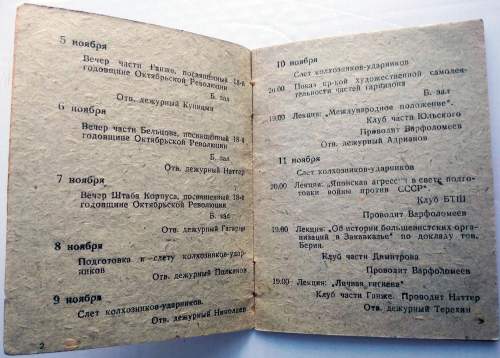 5 ноября
Вечер части Ганже, посвященный 18-й
годовщине Октябрьской Революции
Б. зал
Отв. дежурный Куницин
6 ноября
Вечер части Бельцова, посвященный 18-й
годовщине Октябрьской Революции
Б. зал
Отв. дежурный Наттер
7 ноября
Вечер Штаба Корпуса, посвященный 18-й
годовщине Октябрьской Революции
Б. зал
Отв. дежурный Гагарин
8 ноября
Подготовка к слету колхозников-удар-
ников
Отв. дежурный Полканов
9 ноября
Слет колхозников-ударников.
Отв. дежурный Николаев
2
10 ноября
Слет колхозников-ударников
20.00 Показ кр-кой художественной самодея-
тельности частей гарнизона
Б. зал
19.00 Лекция: „Международное положение“.
Клуб части Юльского
Проводит Варфоломеев
Отв. дежурный Адрианов
11 ноября
Слет колхозников-ударников
20.00 Лекция: „Японская агресс в свете подготовки
войны против СССР“
Клуб БТШ
Проводит Варфоломеев
19.00 Лекция: „Об истории большевистских орга-
низаций в Закавказье“ по докладу тов.
Берия.
Клуб части Дмитрова
Проводит Варфоломеев
19.00 Лекция: „Личная гигиена“
Клуб части Ганже. Проводит Наттер
Отв. дежурный Терехин